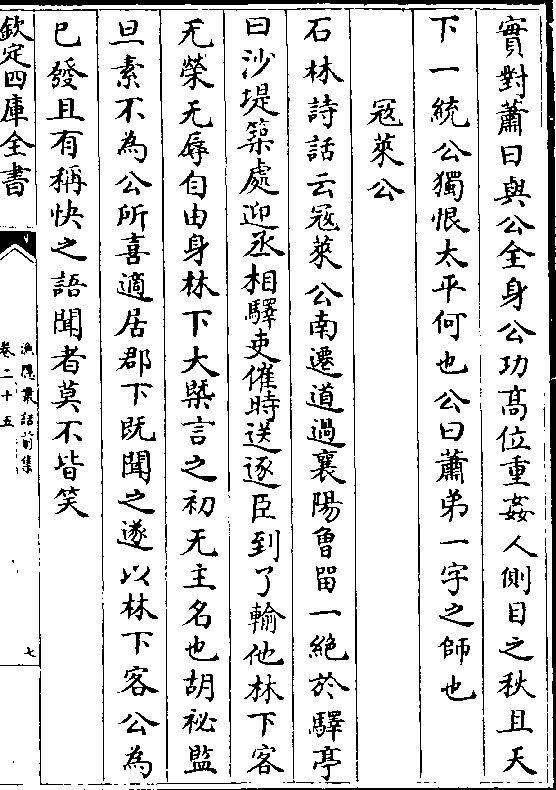 實對蕭曰與公全身公功髙位重姦人側目之秋且天
下一統公獨恨太平何也公曰蕭弟一字之師也
冦萊公
石林詩話云冦萊公南遷道過襄陽曾留一絶於驛亭
曰沙堤築處迎丞相驛吏催時送逐臣到了輸他林下客
无榮无辱自由身林下大槩言之初无主名也胡祕監
旦素不為公所喜適居郡下既聞之遂以林下客公為
已發且有稱快之語聞者莫不皆笑
欽定四庫全書
漁隱叢話前集
卷二十五
七